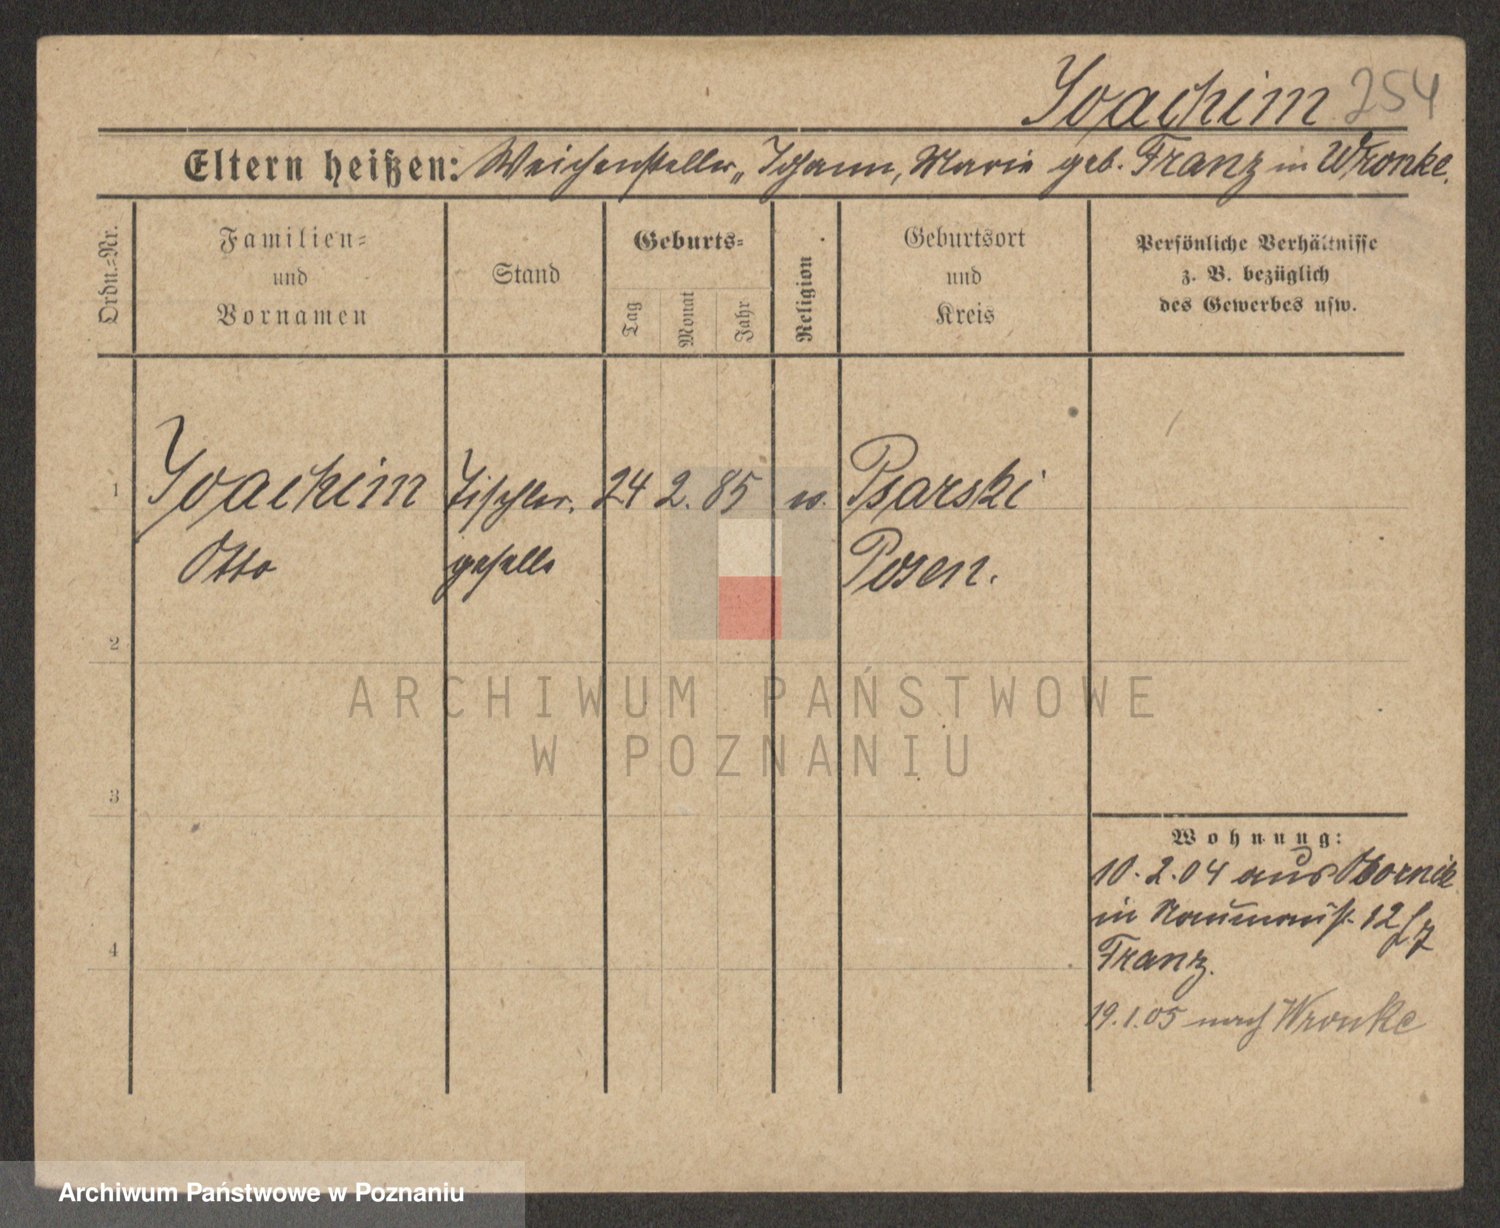 Joachim 254
Eltern heißen: Weichensteller, Johann, Marie geb. Franz in Wronke.
Ordn.-Nr.
Familien-
und
Vornamen
Stand
Geburts-
Tag
Monat
Jahr
Religion
Geburtsort
und
Kreis
Persönliche Verhältnisse
z. B. bezüglich
des Gewerbes usw.
1 Joachim Tischler. 24 2. 85 Psarski
Otto geselle Posen.
2
3
4
Wohnung:
10. 2. 04 aus Obornik
in Naumannst. 12
Franz.
19. 1. 05 nach Wronke
ARCHIWUM PAŃSTWOWE
W POZNANIU
Archiwum Państwowe w Poznaniu